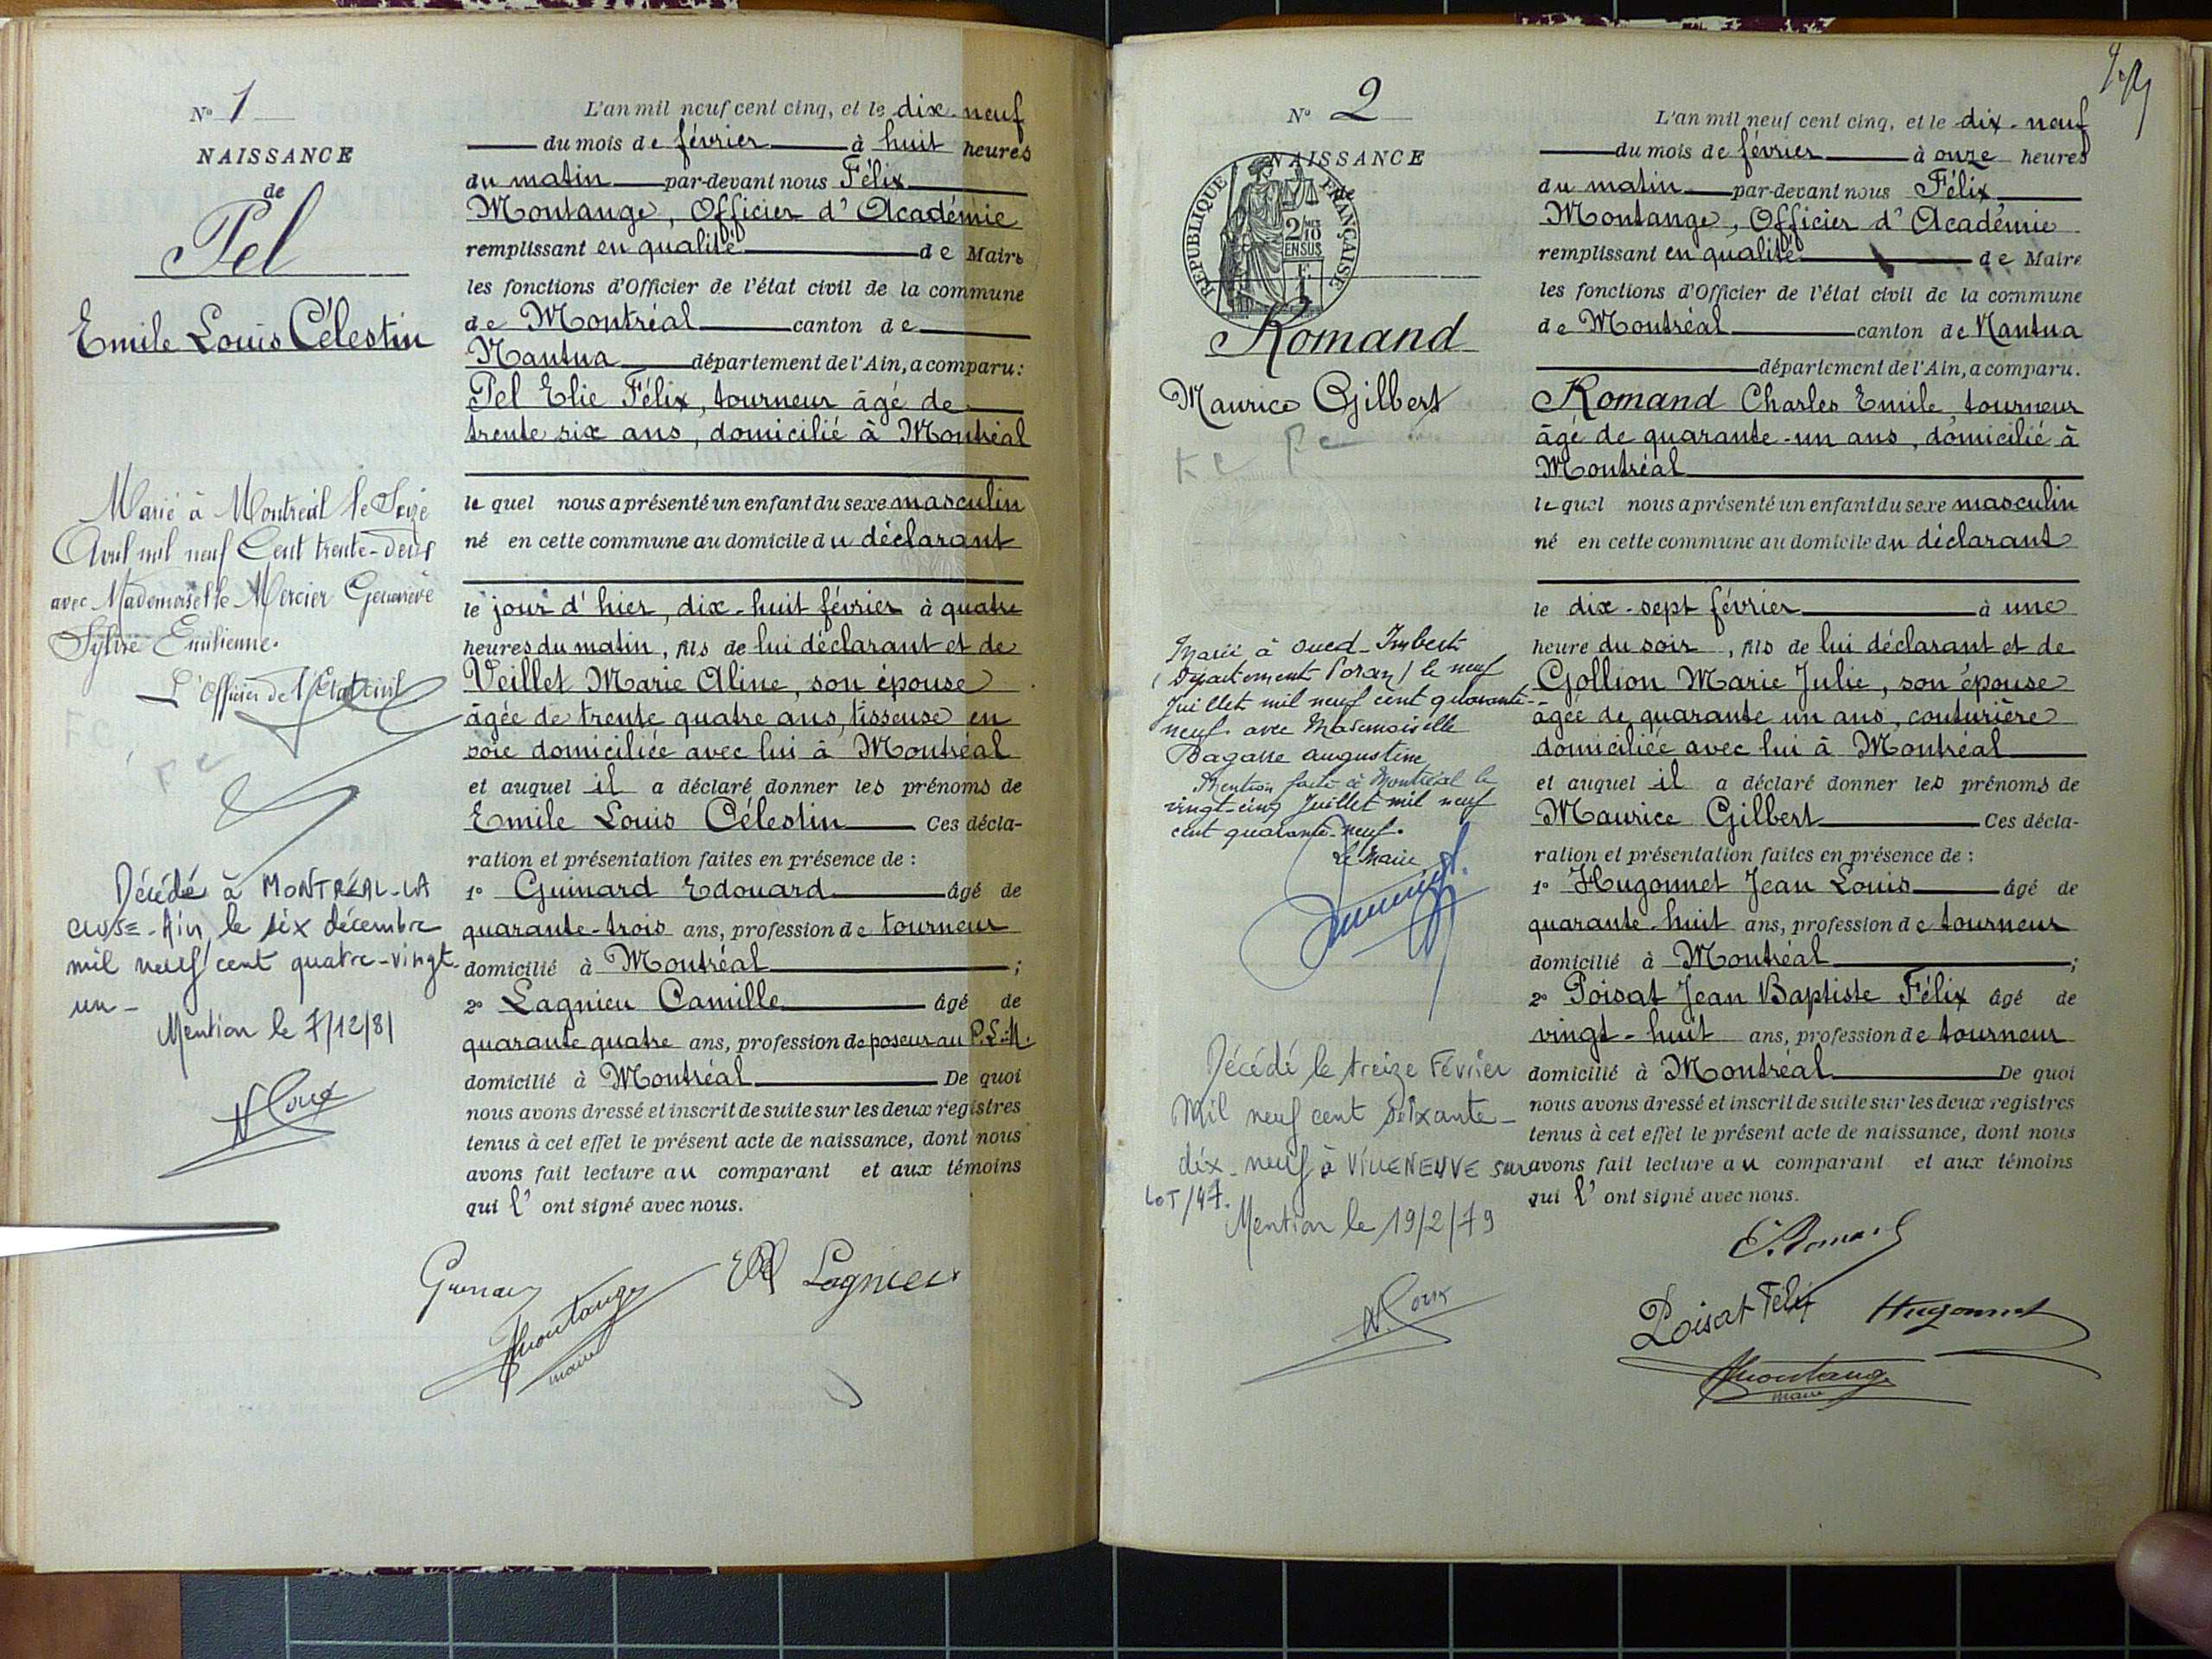 N° 1
NAISSANCE
de
Pel
Emile Louis Célestin
Marié à Montréal le Seize
Avril mil neuf Cent trente-deux
avec Mademoiselle Mercier Geneviève
Sylvie Emilienne.
L'Officier de l'Etat civil
Décédé à MONTRÉAL-LA
CLUSE-Ain, le six décembre
mil neuf cent quatre-vingt-
un-
Mention le 7/12/81
L'an mil neuf cent cinq, et le dix-neuf
du mois de février à huit heures
du matin par-devant nous Félix
Montange, Officier d'Académie
remplissant en qualité de Maire
les fonctions d'Officier de l'état civil de la commune
de Montréal canton de
Nantua département de l'Ain, a comparu:
Pel Elie Félix, tourneur âgé de
trente six ans, domicilié à Montréal
le quel nous a présenté un enfant du sexe masculin
né en cette commune au domicile du déclarant
le jour d'hier, dix-huit février à quatre
heures du matin, fils de lui déclarant et de
Veillet Marie Aline, son épouse
âgée de trente quatre ans, tisseuse en
soie domiciliée avec lui à Montréal
et auquel il a déclaré donner les prénoms de
Emile Louis Célestin Ces décla-
ration et présentation faites en présence de :
1° Guinard Edouard âgé de
quarante-trois ans, profession de tourneur
domicilié à Montréal ;
2° Lagnieu Camille âgé de
quarante quatre ans, profession de poseur au P.L.M.
domicilié à Montréal De quoi
nous avons dressé et inscrit de suite sur les deux registres
tenus à cet effet le présent acte de naissance, dont nous
avons fait lecture au comparant et aux témoins
qui l'ont signé avec nous.
Lagnieu
Montange
maire
N° 2
NAISSANCE
de
REPUBLIQUE FRANÇAISE
2/10
EN SUS
Romand
Maurice Gilbert
Marié à Oued-Imbert
(Département d'oran) le neuf
Juillet mil neuf cent quarante-
neuf avec Mademoiselle
Bagasse augustine
Mention faite à Montréal le
vingt-cinq Juillet mil neuf
cent quarante-neuf.
Le Maire
Décédé le treize Février
Mil neuf cent soixante-
dix-neuf à VILLENEUVE sur
LOT/47.
Mention le 19/2/79
L'an mil neuf cent cinq, et le dix-neuf
du mois de février à onze heures
du matin par-devant nous Félix
Montange, Officier d'Académie
remplissant en qualité de Maire
les fonctions d'Officier de l'état civil de la commune
de Montréal canton de Nantua
département de l'Ain, a comparu.
Romand Charles Emile, tourneur
âgé de quarante-un ans, domicilié à
Montréal
le quel nous a présenté un enfant du sexe masculin
né en cette commune au domicile du déclarant
le dix-sept février à une
heure du soir, fils de lui déclarant et de
Gollion Marie Julie, son épouse
âgée de quarante un ans, couturière
domiciliée avec lui à Montréal
et auquel il a déclaré donner les prénoms de
Maurice Gilbert Ces décla-
ration et présentation faites en présence de :
1° Hugonnet Jean Louis âgé de
quarante-huit ans, profession de tourneur
domicilié à Montréal ;
2° Poisat Jean Baptiste Félix âgé de
vingt-huit ans, profession de tourneur
domicilié à Montréal De quoi
nous avons dressé et inscrit de suite sur les deux registres
tenus à cet effet le présent acte de naissance, dont nous
avons fait lecture au comparant et aux témoins
qui l'ont signé avec nous.
Poisat Félix Hugonnet
Montange
maire